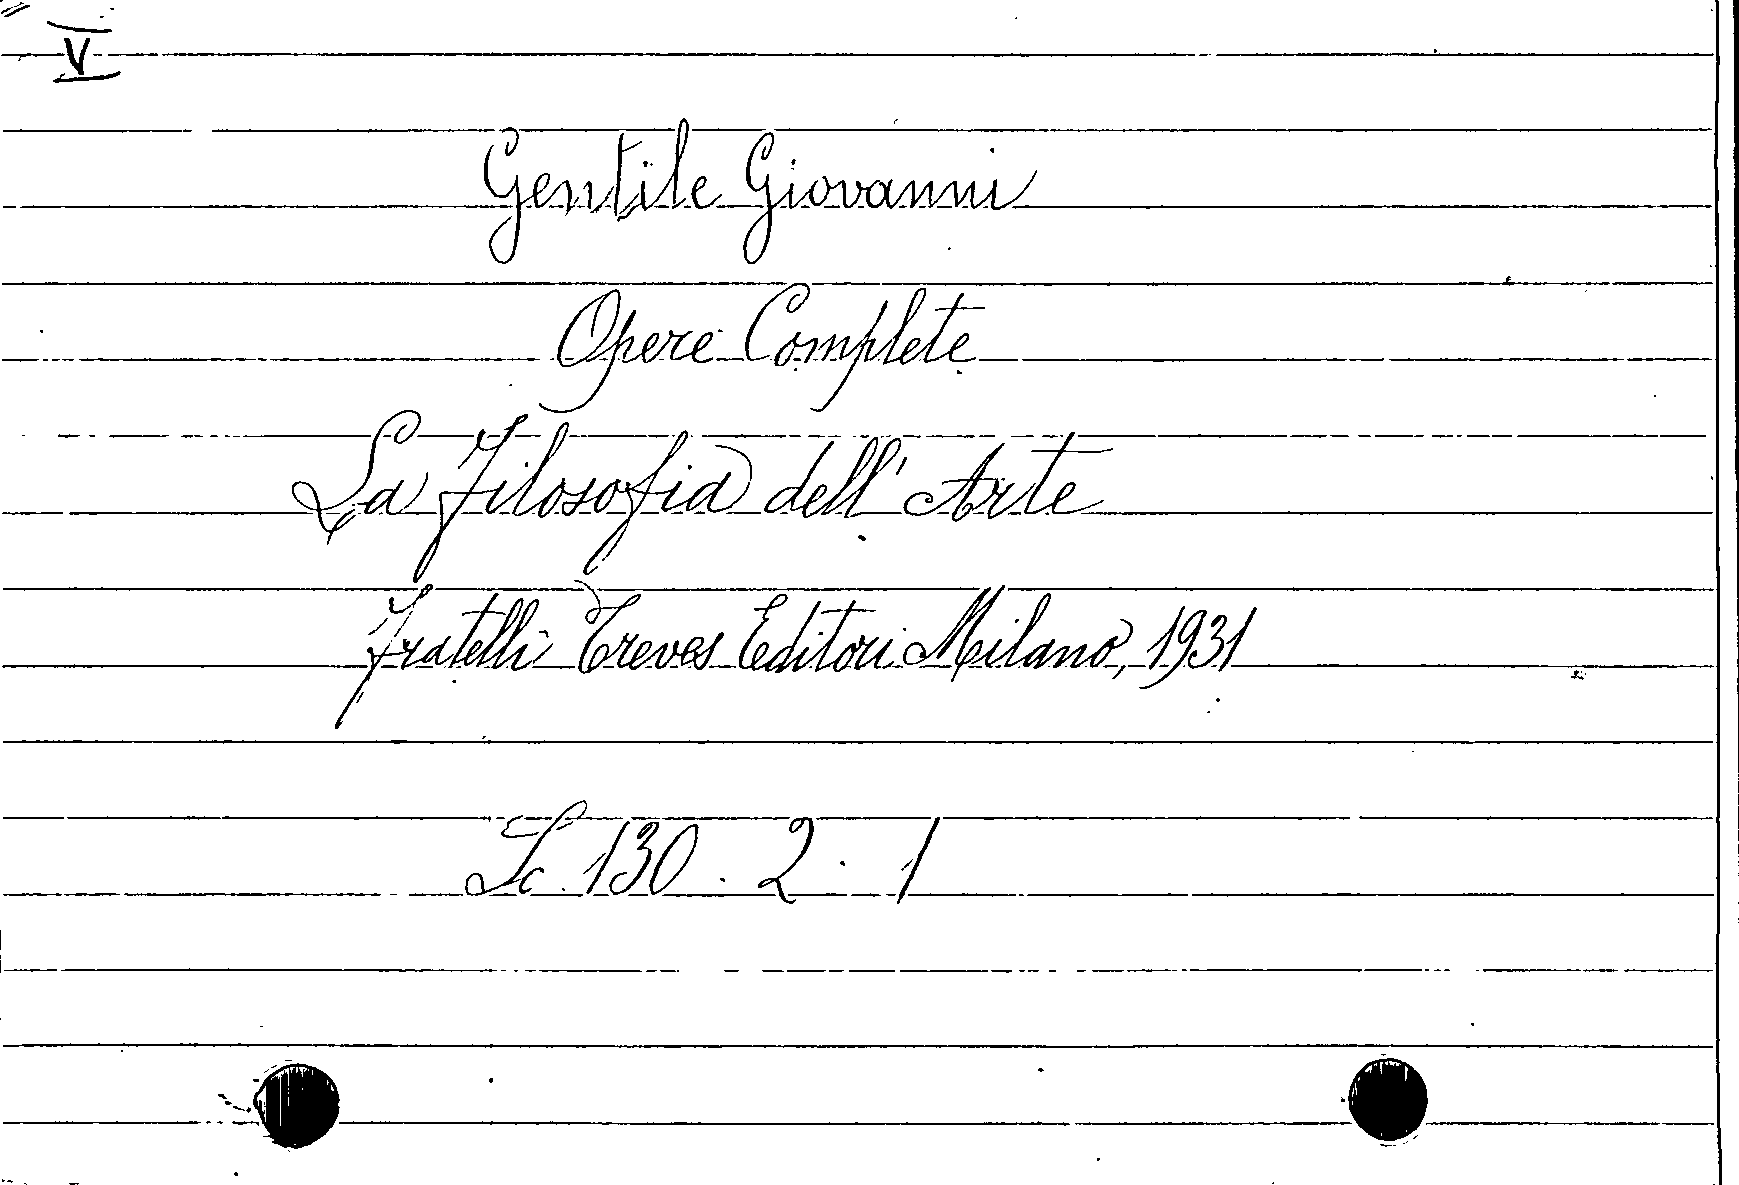 V
Gentile Giovanni
Opere Complete
La Filosofia dell'Arte
Fratelli Treves Editori Milano, 1931
Sc. 130 . 2 . 1